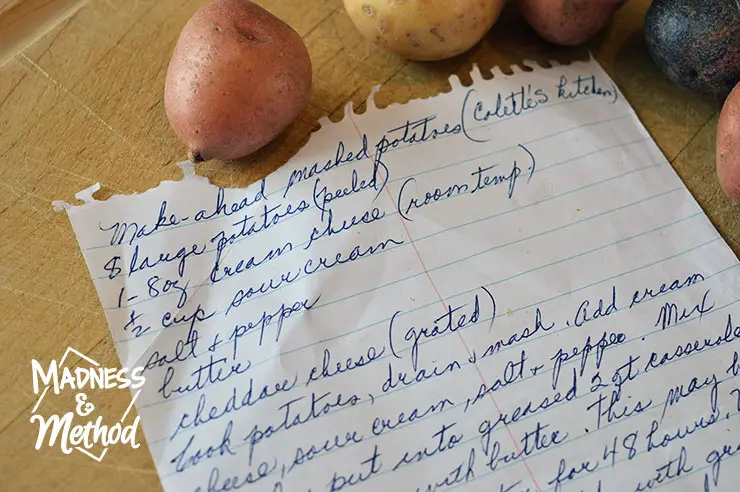 Make-ahead mashed potatoes (Colette's kitchen)
8 large potatoes (peeled)
1-8oz cream cheese (room temp.)
½ cup sour cream
salt + pepper
butter
cheddar cheese (grated)
Cook potatoes, drain + mash. Add cream
cheese, sour cream, salt + pepper. Mix
put into greased 2 qt casserole
with butter. This may b
for 48 hours.
with gr
MADNESS
& Method